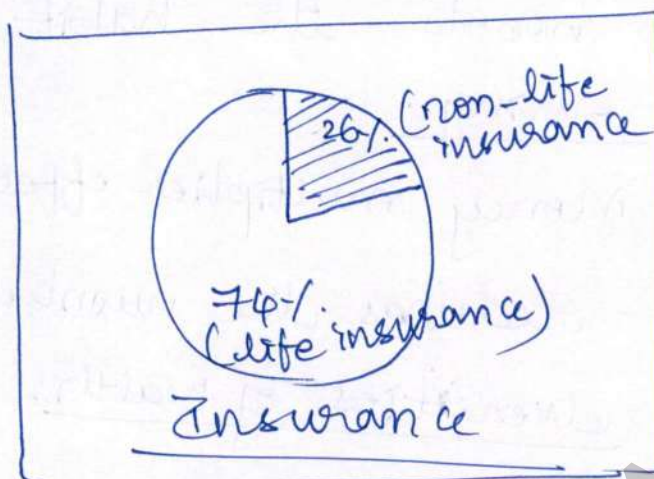 26%. (non-life
insurance
74%.
(life insurance)
Insurance